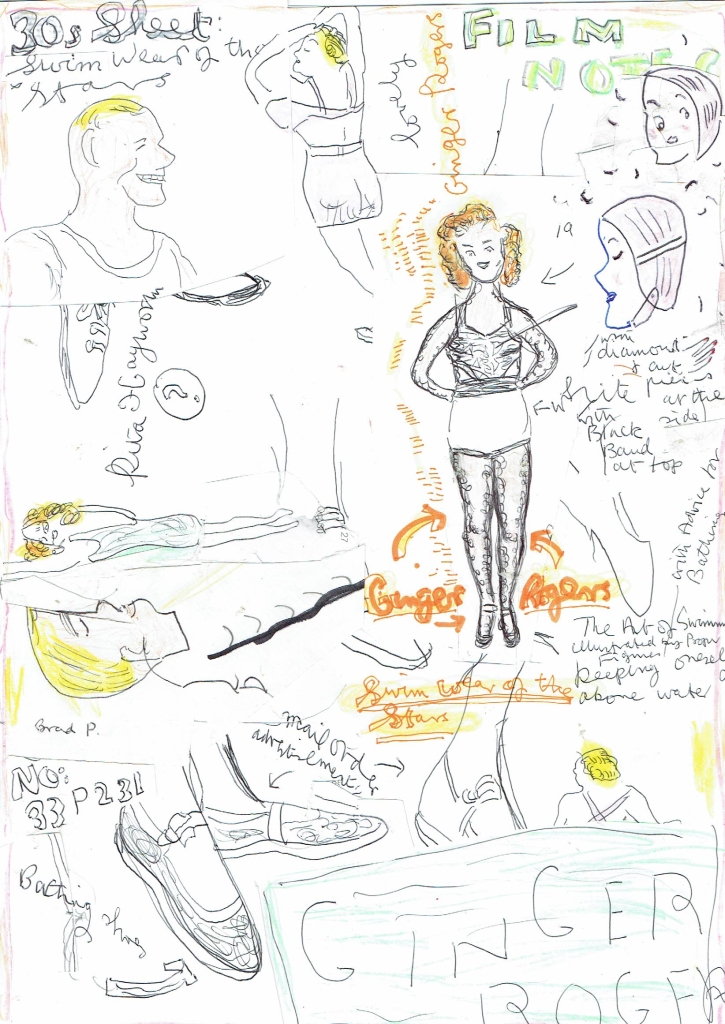 30s Sheet:
Swim Wear of the
Stars
lovely
Ginger Rogers
FILM
NOTES
19
Rita Hayworth
with
diamond
cut
white pieces
at the
side
with
Black
Band
at top
with Advice for
Bathing
27
Ginger Rogers
The Art of Swimming
illustrated by Proper
Figures
Keeping oneself
above water
Swim wear of the
Stars
Brad P.
mail order
advertisement
NO:
33 P231
Bathing
GINGER
ROGER